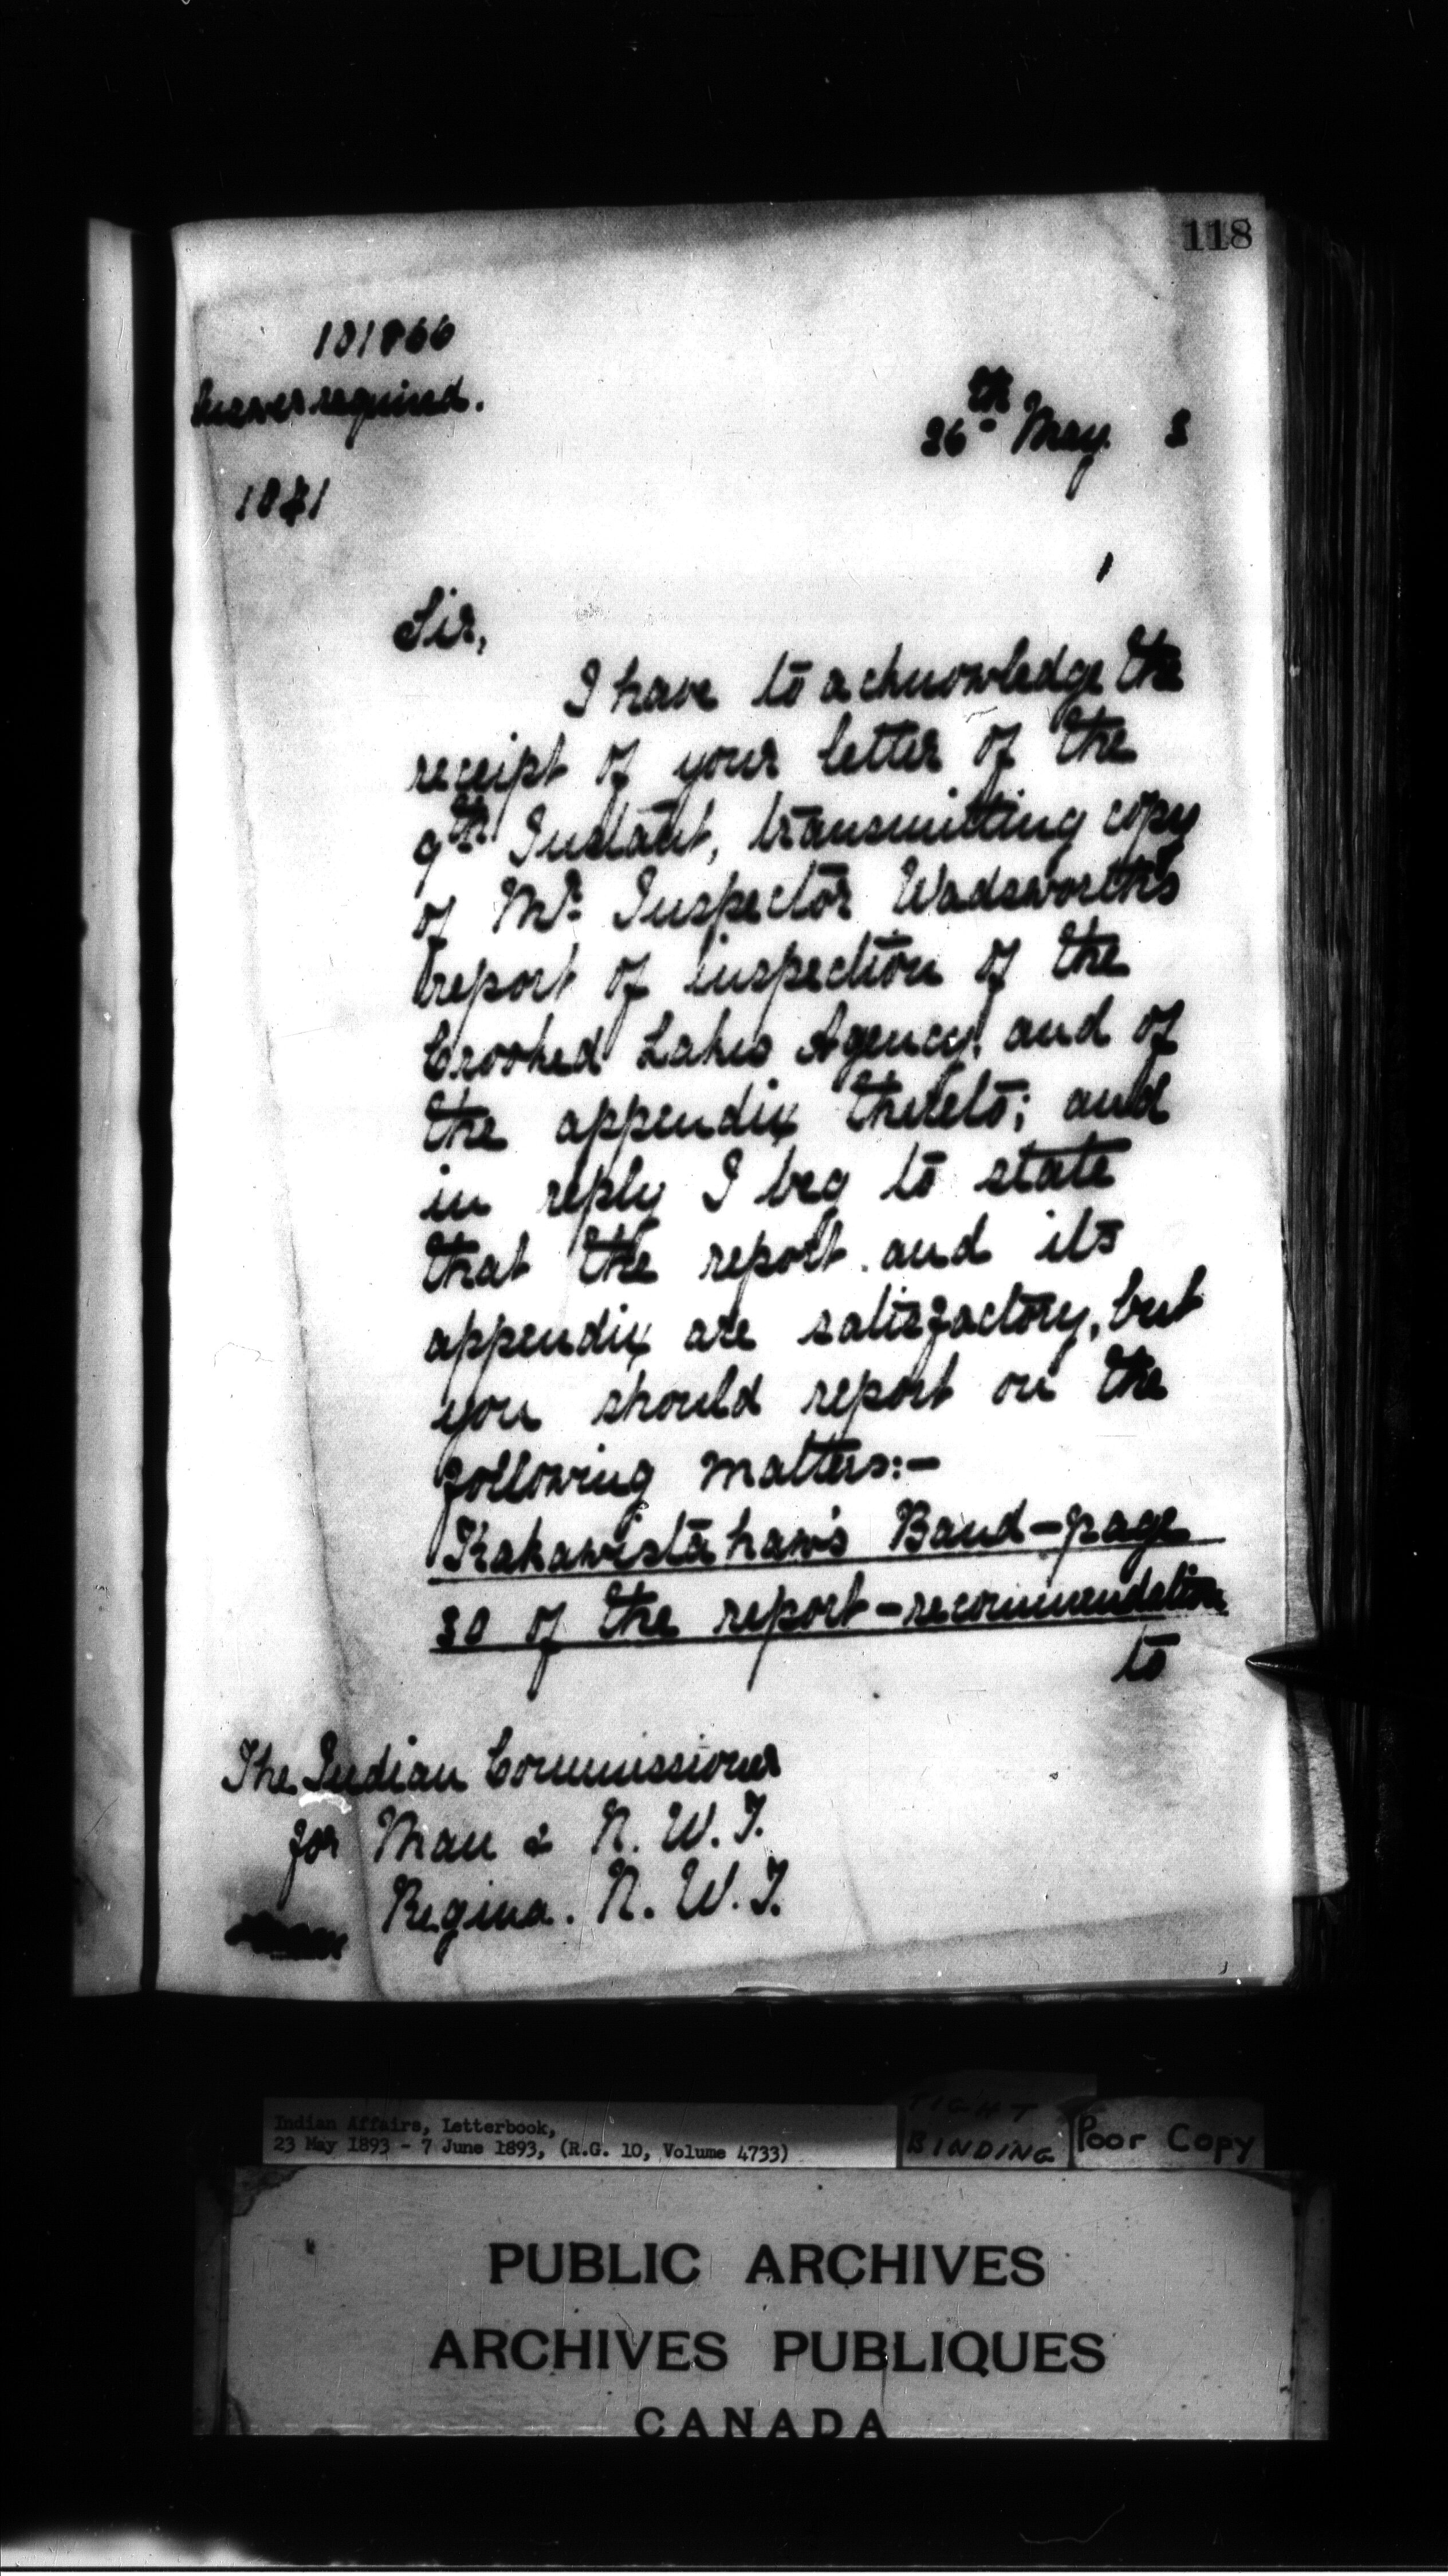 118
101866
Answer required.
26th May 3
1041
Sir,
I have to acknowledge the
receipt of your letter of the
9th Instant, transmitting copy
of Mr. Inspector Wadsworth's
report of inspection of the
Crooked Lakes Agency, and of
the appendix thereto; and
in reply I beg to state
that the report and its
appendix are satisfactory, but
you should report on the
following matters:-
Kakawistahaw's Band - page
30 of the report - recommendation
to
The Indian Commissioner
for Man & N. W. T.
Regina. N. W. T.
Indian Affairs, Letterbook,
23 May 1893 - 7 June 1893, (R.G. 10, Volume 4733)
TIGHT
BINDING
Poor Copy
PUBLIC ARCHIVES
ARCHIVES PUBLIQUES
CANADA